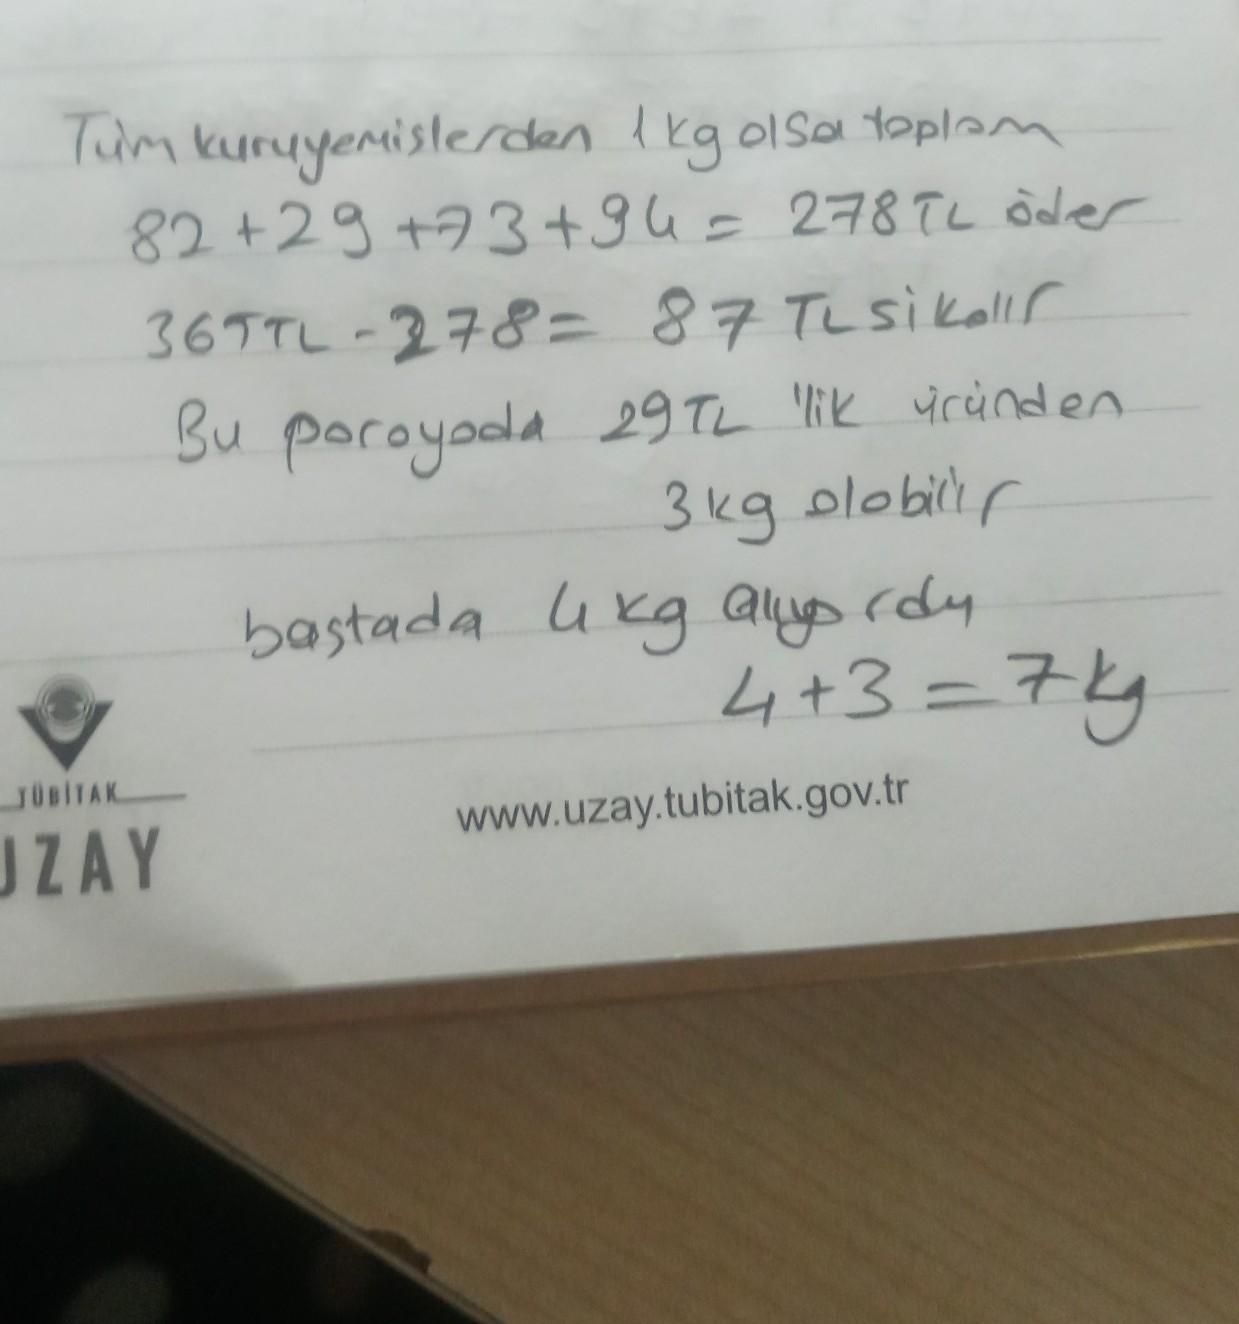 Tüm kuruyemislerden 1 kg olsa toplam
82 + 29 + 73 + 94 = 278 TL öder
365 TL - 278 = 87 TL si kalır
Bu parayada 29 TL 'lik üründen
3 kg alabilir
baştada 4 kg alıyordu
4 + 3 = 7 kg
TÜBİTAK
UZAY
www.uzay.tubitak.gov.tr